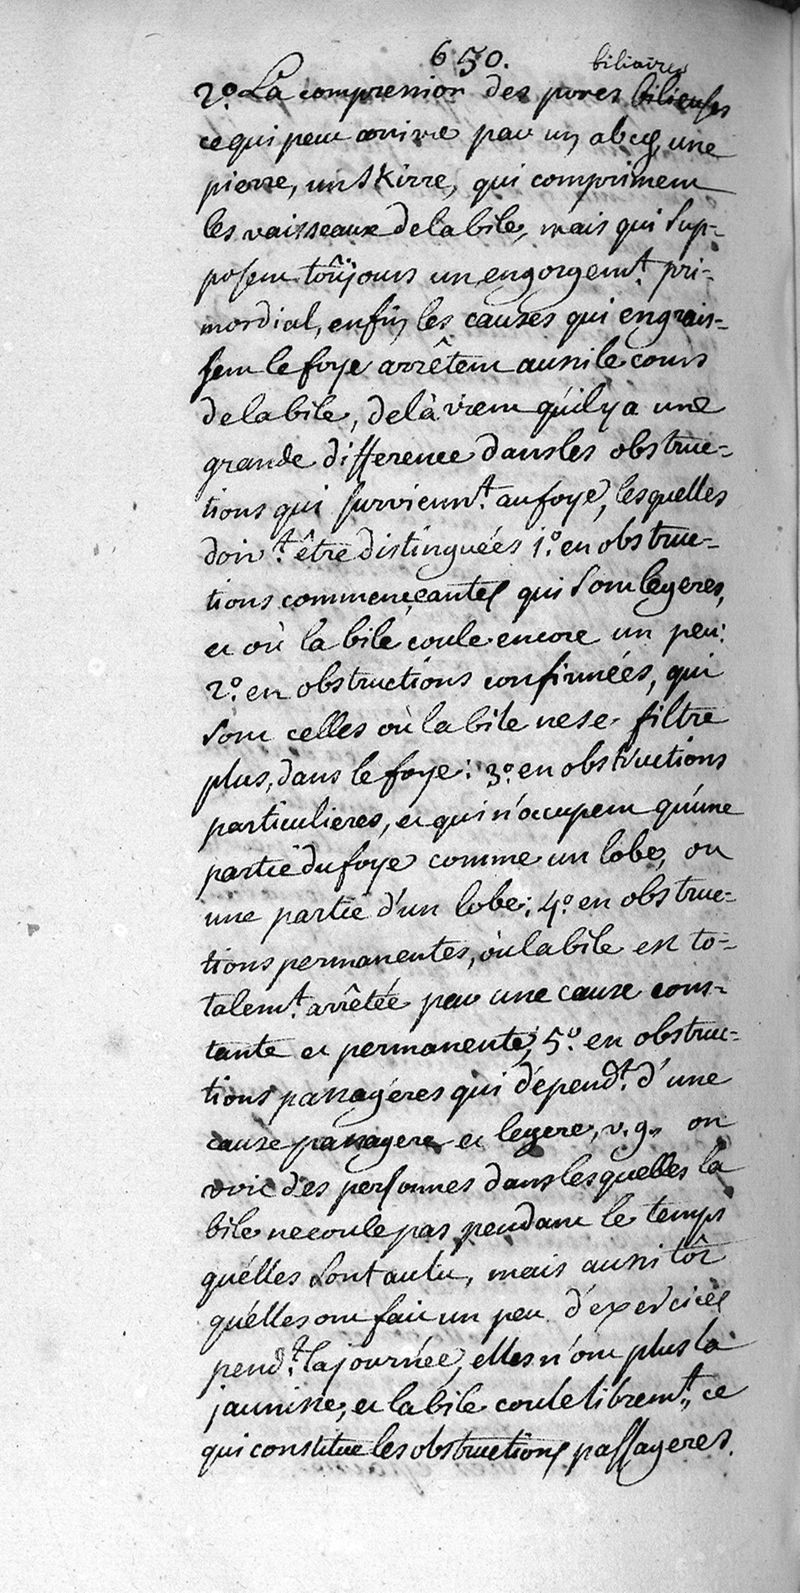 650.
biliaires
2.° La compression des pores bilieuses
ce qui peut arrivre par un abcès, une
pierre, un skirre, qui compriment
les vaisseaux de la bile, mais qui sup-
posent toûjours un engorgem.t pri-
mordial, enfin les causes qui engrais-
sent le foye arrêtent aussi le cours
de la bile, de là vient qu'il y a une
grande difference dans les obstruc-
tions qui survienn.t au foye, lesquelles
doiv.t être distinguées 1.° en obstruc-
tions commençantes qui sont legeres,
et où la bile coule encore un peu:
2.° en obstructions confirmées, qui
sont celles où la bile ne se filtre
plus, dans le foye: 3.° en obstructions
particulieres, et qui n'occupent qu'une
partie du foye comme un lobe, ou
une partie d'un lobe; 4.° en obstruc-
tions permanentes, où la bile est to-
talem.t arrêtée par une cause cons-
tante et permanente; 5.° en obstruc-
tions passagéres qui dépend.t d'une
cause passagere et legere, v.g. on
voit des personnes dans lesquelles la
bile ne coule pas pendant le temps
qu'elles sont au lit, mais aussi tôt
qu'elles ont fait un peu d'exercices
pend.t la journée, elles n'ont plus la
jaunisse, et la bile coule librem.t, ce
qui constitue les obstructions passageres.